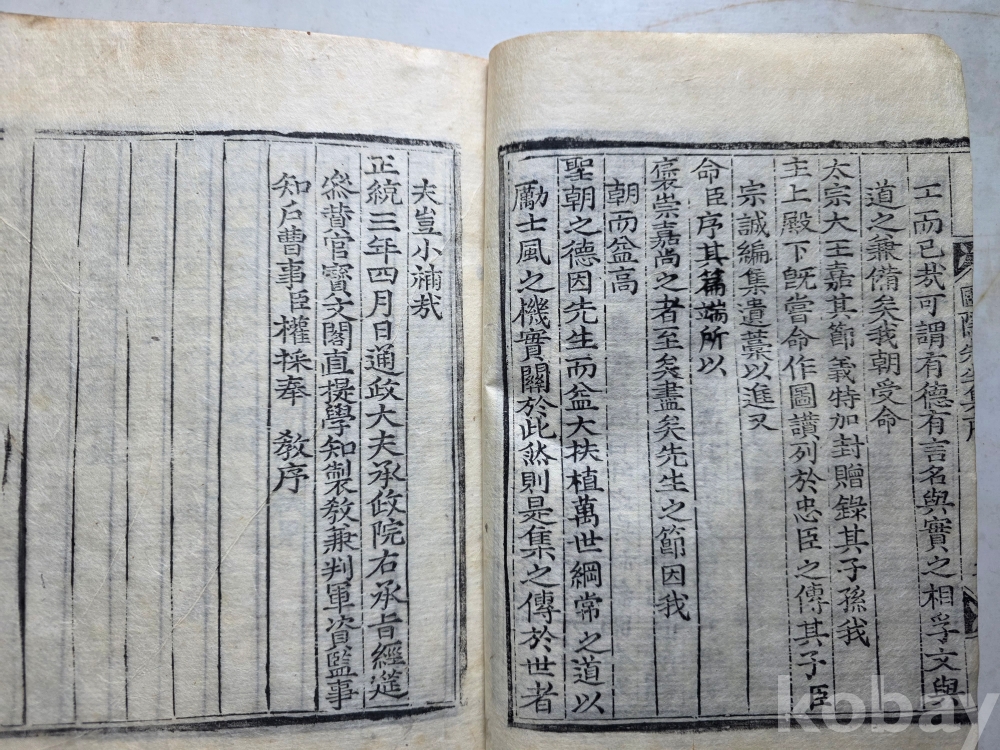 工而已哉可謂有德有言名與實之相孚文與
道之兼備矣我朝受命
太宗大王嘉其節義特加封贈錄其子孫我
主上殿下旣嘗命作圖讃列於忠臣之傳其子臣
宗誠編集遺藁以進又
命臣序其篇端所以
褒崇嘉尙之者至矣盡矣先生之節因我
朝而益高
聖朝之德因先生而益大扶植萬世綱常之道以
勵士風之機實關於此然則是集之傳於世者
夫豈小補哉
正統三年四月日通政大夫承政院右承旨經筵
叅賛官寶文閣直提學知製敎兼判軍資監事
知戶曹事臣權採奉 敎序
kobay